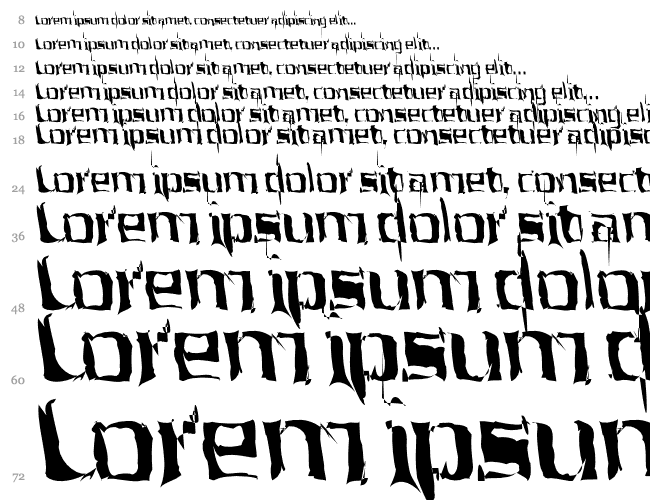 8 Lorem ipsum dolor sit amet, consectetuer adipiscing elit...
10 Lorem ipsum dolor sit amet, consectetuer adipiscing elit...
12 Lorem ipsum dolor sit amet, consectetuer adipiscing elit...
14 Lorem ipsum dolor sit amet, consectetuer adipiscing elit...
16 Lorem ipsum dolor sit amet, consectetuer adipiscing eli
18 Lorem ipsum dolor sit amet, consectetuer adipisc
24 Lorem ipsum dolor sit amet, consect
36 Lorem ipsum dolor sit am
48 Lorem ipsum dolor
60 Lorem ipsum d
72 Lorem ipsum